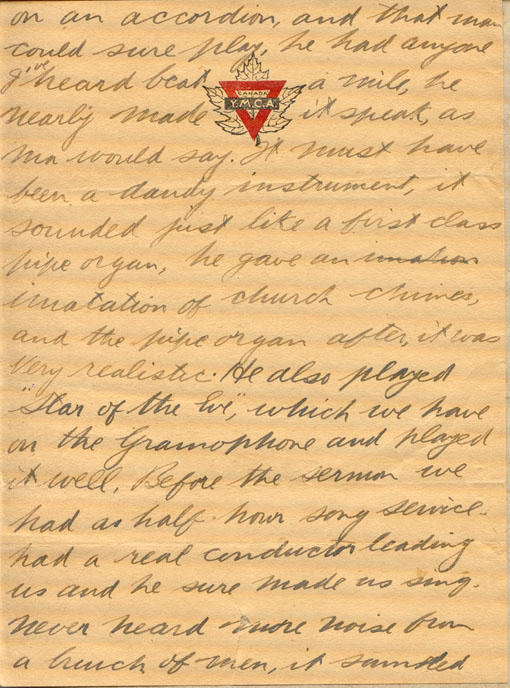 on an accordion, and that man
could sure play, he had anyone
I've heard beat a mile, he
CANADA
Y.M.C.A.
nearly made it speak, as
Ma would say. It must have
been a dandy instrument, it
sounded just like a first class
pipe organ, he gave an
imatation of church chimes,
and the pipe organ after, it was
very realistic. He also played
"Star of the Eve", which we have
on the Gramophone and played
it well. Before the sermon we
had a half-hour song service.
had a real conductor leading
us and he sure made us sing.
Never heard more noise from
a bunch of men, it sounded